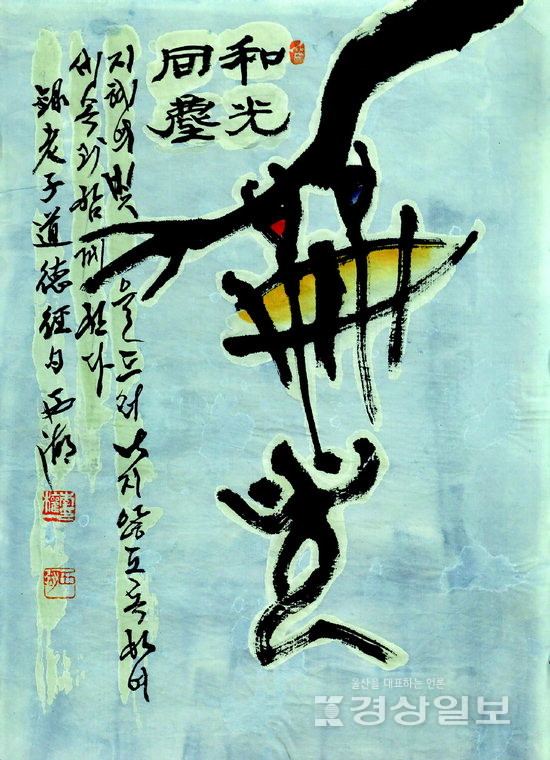 和光
同塵
지혜의 빛을 드러내지 않도록 하여
세속과 함께 한다
錄老子道德經句 西湖
울산을 대표하는 언론
경상일보